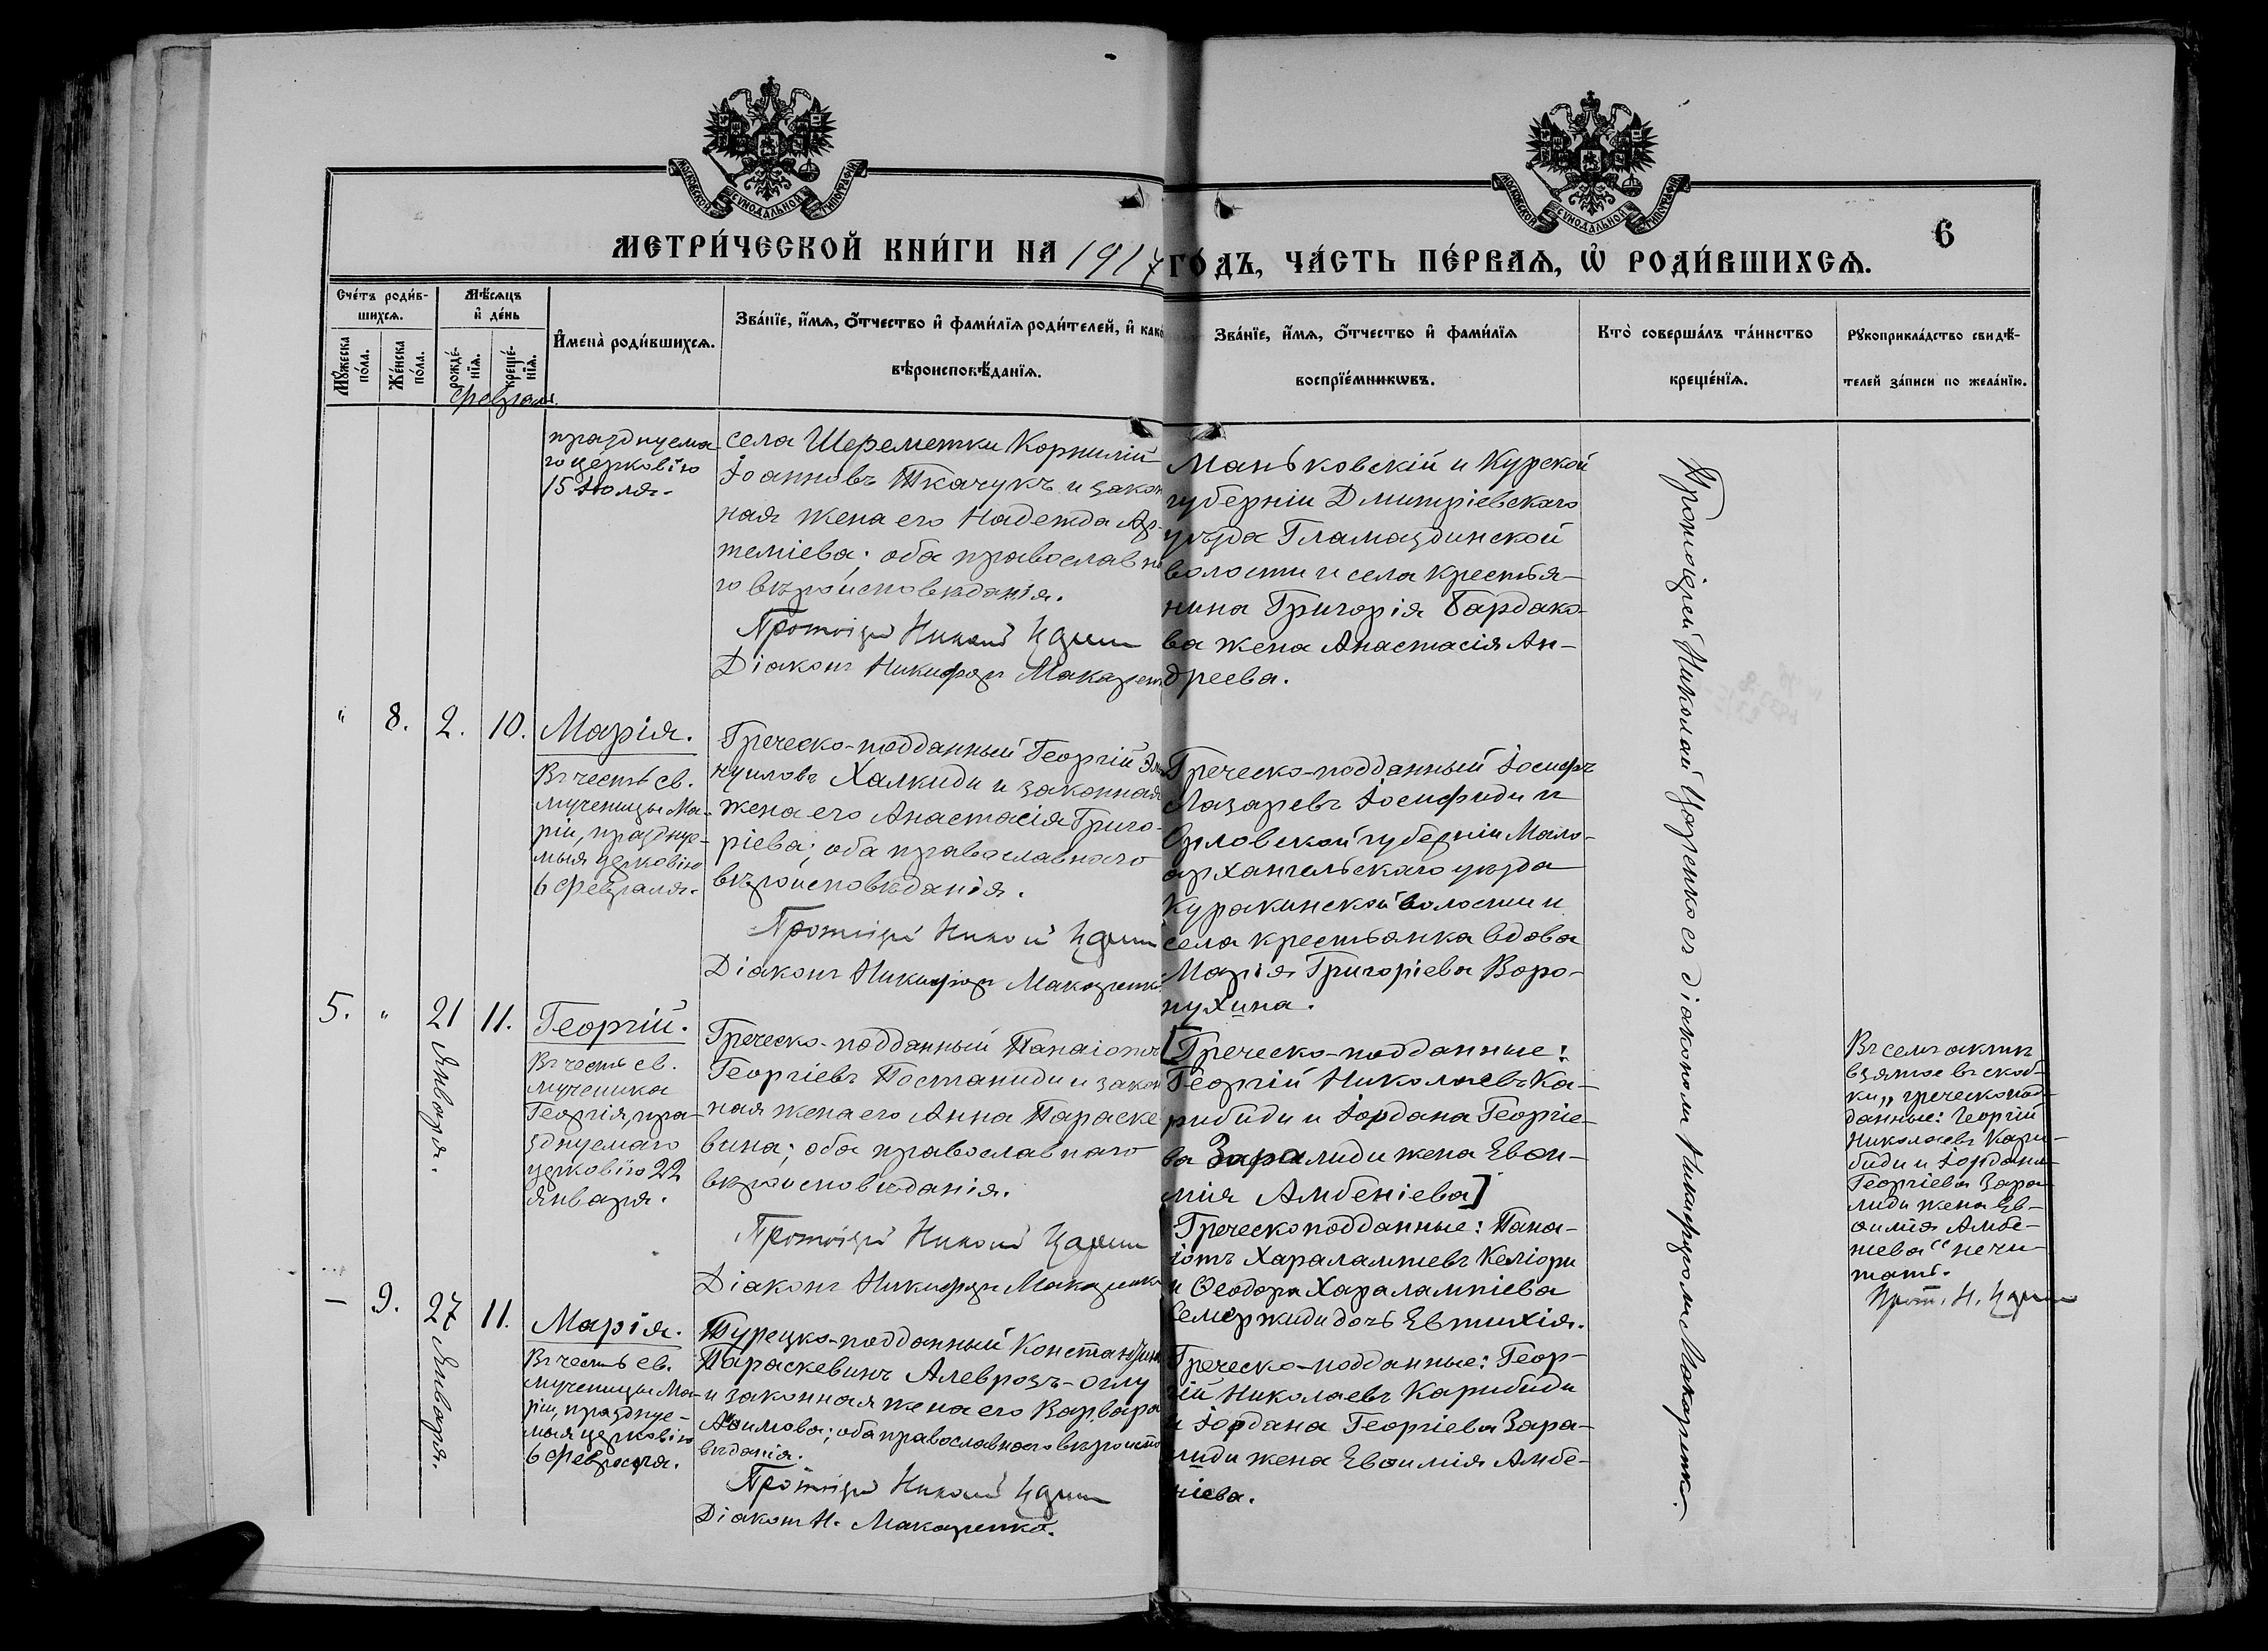 МОСКОВСКОЙ СѴНОДАЛЬНОЙ ТИПОГРАФІИ
МОСКОВСКОЙ СѴНОДАЛЬНОЙ ТИПОГРАФІИ
6
МЕТРИ́ЧЕСКОЙ КНИ́ГИ НА 1917 ГО́ДЪ, ЧА́СТЬ ПЕ́РВАѦ, Ѡ҆ РОДИ́ВШИХСѦ.
Сче́тъ роди́в-
шихсѧ.
Мꙋ́жеска
по́ла.
Же́нска
по́ла.
Мѣ́сѧцъ
и҆ де́нь
рожде́-
нїѧ.
креще́-
нїѧ.
Февраль.
И҆мена̀ роди́вшихсѧ.
Зва́нїе, и҆́мѧ, ѻ҆́тчество и҆ фами́лїѧ роди́телей, и҆ како
вѣроисповѣ́данїѧ.
Зва́нїе, и҆́мѧ, ѻ҆́тчество и҆ фами́лїѧ
воспрїе́мникѡвъ.
Кто̀ соверша́лъ та́инство
креще́нїѧ.
Рꙋкоприкла́дство свидѣ́-
телей за́писи по жела́нїю.
празднуема-
го церковію
15 Июля.
села Шереметки Корнилій
Іоанновъ Ткачукъ и закон
ная жена его Надежда Ар-
теміева; оба православна
го вѣроисповѣданія.
Протоіерей Николай Царенко
Діаконъ Никифоръ Макаренко
Маньковскій и Курской
губерніи Дмитріевскаго
уѣзда Гламаздинской
волости и села крестья-
нина Григорія Бардако-
ва жена Анастасія Ан-
дреева.
" 8. 2. 10. Марія.
Въ честь св.
мученицы Ма-
ріи, праздпуе-
мыя церковію
6 Февраля.
Греческо-подданный Георгій
Халкиди и законная
жена его Анастасія Григо-
ріева; оба православнаго
вѣроисповѣданія.
Протоіерей Николай Царенко
Діаконъ Никифоръ Макаренко.
Греческо-подданный Іосифъ
Лазаревъ Іосифиди и
Орловской губерніи Мало-
архангельскаго уѣзда
Куракинской волости и
села крестьянка вдова
Марія Григоріева Воро-
нухина.
5. " 21 Января. 11. Георгій.
Въ честь св.
мученика
Георгія, пра-
зднуемаго
церковію 22
Января.
Греческо-подданный Панаіотъ
Георгіевъ Постаниди и закон
ная жена его Анна Параске
вина; оба православнаго
вѣроисповѣданія.
Протоіерей Николай Царенко
Діаконъ Никифоръ Макаренко
[Греческо-подданные:
Георгій Николаевъ Ка-
рибиди и Іордана Георгіе-
ва Заралиди жена Евѳи-
мія Амбеніева]
Греческоподданные: Пана-
іотъ Харалампіевъ Келіори
и Ѳеодора Харалампіева
Семержиди дочь Евтихія.
Въ семъ актѣ
взятое въ скоб-
ки „греческопод-
данные: Георгій
Николаевъ Кари-
биди и Іордана
Георгіева Зара-
лиди жена Ев-
ѳимія Амбе-
ніева“ не чи-
тать.
Прот. Н. Царенко
— 9. 27 Января. 11. Марія.
Въ честь св.
мученицы Ма-
ріи, праздпуе-
мыя церковію
6 Февраля.
Турецко-подданный Константинъ
Параскевинъ Алеврозъ-оглу
и законная жена его Варвара
Аѳимова; оба православнаго вѣроиспо
вѣданія.
Протоіерей Николай Царенко
Діаконъ Н. Макаренко.
Греческо-подданные: Геор-
гій Николаевъ Карибиди
и Іордана Георгіева Зара-
лиди жена Евѳимія Амбе-
ніева.
Протоіерей Николай Царенко съ діакономъ Никифоромъ Макаренко.